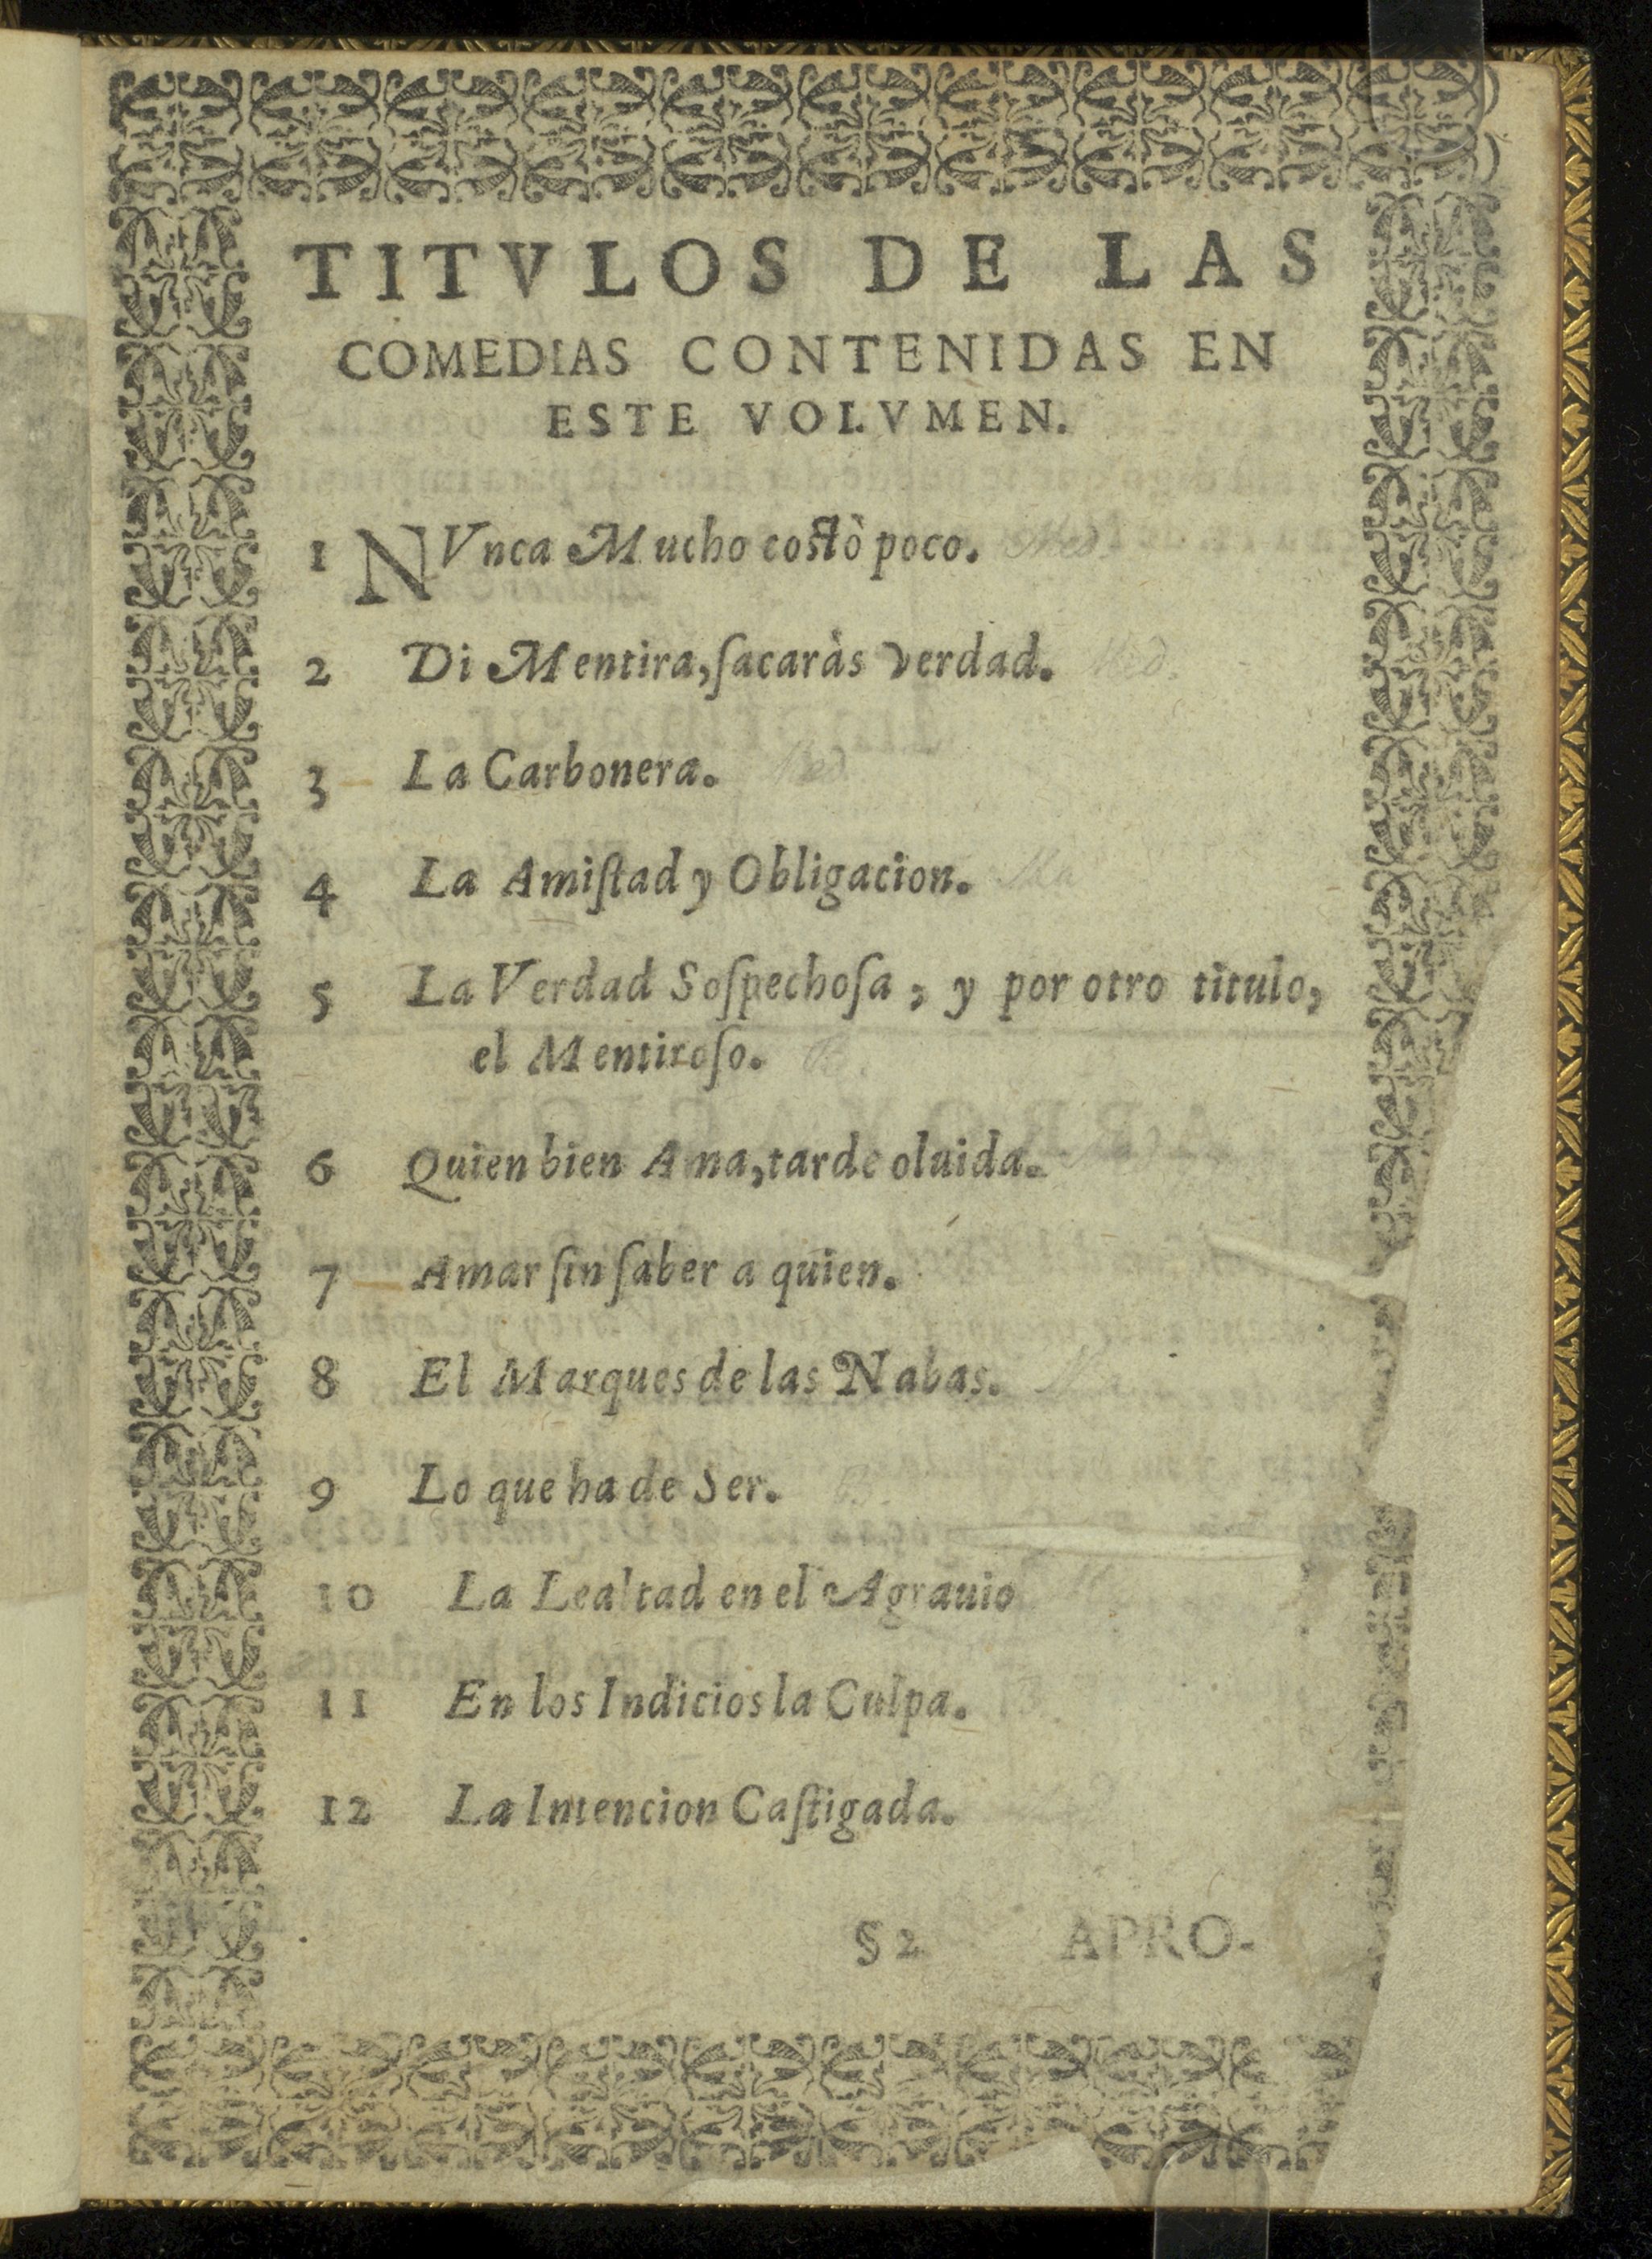 TITVLOS DE LAS
COMEDIAS CONTENIDAS EN
ESTE VOLVMEN.
1 NVnca Mucho costò poco. Med.
2 Di Mentira, ſacaràs verdad. Med.
3 La Carbonera. Med.
4 La Amiſtad y Obligacion. Ma
5 La Verdad Soſpechoſa, y por otro titulo,
el Mentiroſo.
6 Quien bien Ama, tarde oluida.
7 Amar ſin ſaber a quien.
8 El Marques de las Nabas.
9 Lo que ha de Ser.
10 La Lealtad en el Agrauio
11 En los Indicios la Culpa.
12 La Intencion Caſtigada.
§ 2 APRO-